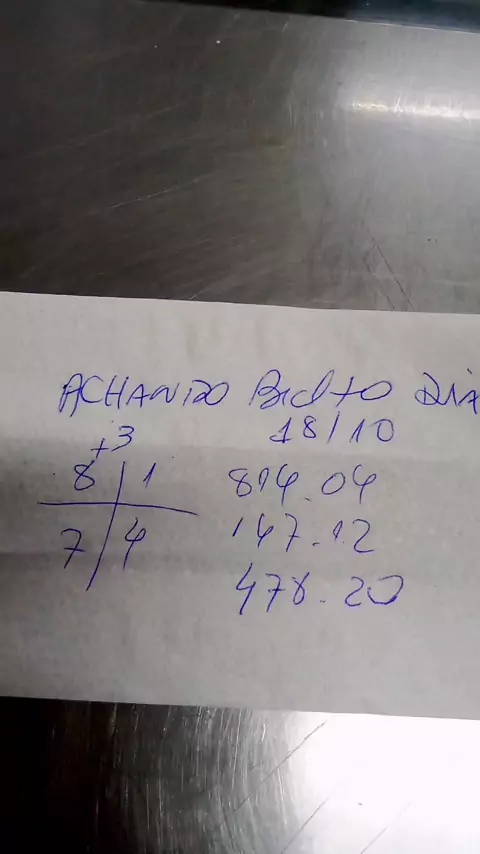 ACHANDO BICHO DIA
18/10
+3
8 1 814.04
7 4 147.12
478.20